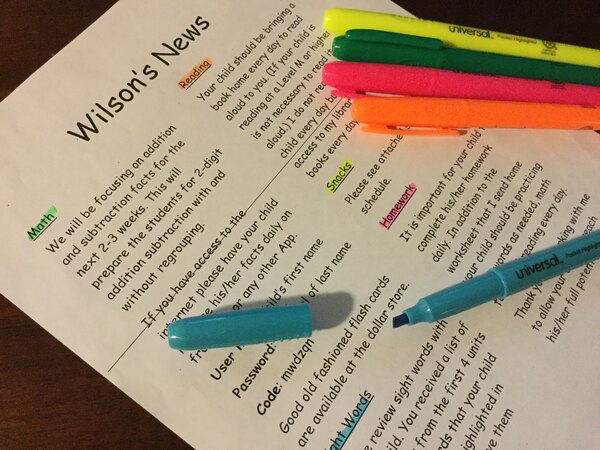 Wilson's News
Math
We will be focusing on addition
and subtraction facts for the
next 2-3 weeks. This will
prepare the students for 2-digit
addition subtraction with and
without regrouping.
If you have access to the
internet please have your child
his/her facts daily on
or any other App.
User
child's first name
Password:
of last name
Code: mwdzqn
Good old fashioned flash cards
are available at the dollar store.
Words
review sight words with
You received a list of
from the first 4 units
that your child
highlighted in
them
Reading
Your child should be bringing a
book home every day to read
aloud to you. (If your child is
reading at a Level M or higher
is not necessary to read
aloud.) I do not
child every day
access to my
books every day
Snacks
Please see
schedule.
Homework
It is important for your child
complete his/her homework
daily. In addition to the
worksheet that I send home
your child should be practicing
as needed, math
reading every day.
Thank
with me
to allow your
each
his/her full
universal Pocket Highlighter
universal